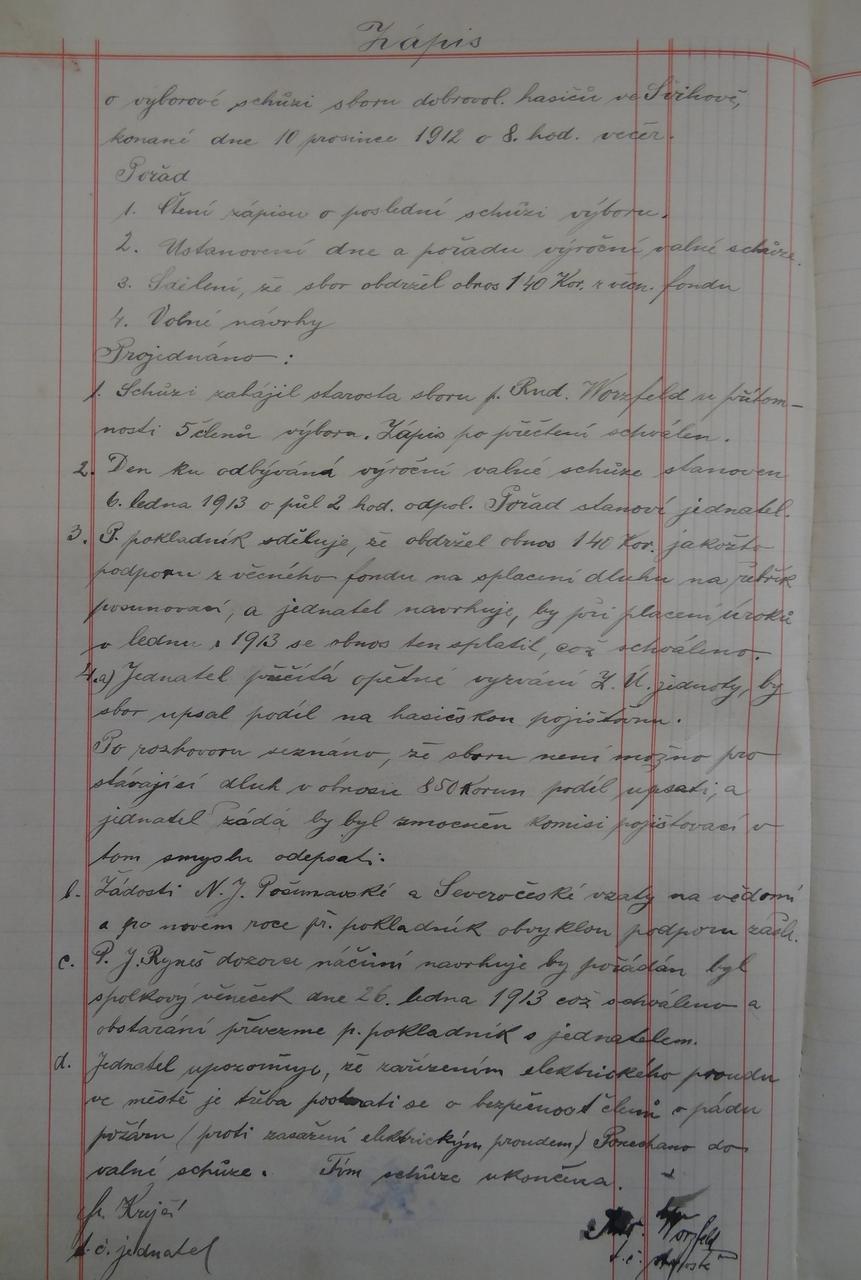 Zápis
o výborové schůzi sboru dobrovol. hasičů ve Švihově,
konané dne 10 prosince 1912 o 8. hod. večer.
Pořad
1. Čtení zápisu o poslední schůzi výboru.
2. Ustanovení dne a pořadu výroční valné schůze.
3. Sdělení, že sbor obdržel obnos 140 Kor. z věcn. fondu
4. Volné návrhy
Projednáno:
1. Schůzi zahájil starosta sboru p. Rud. Worzfeld u přítom-
nosti 5 členů výboru. Zápis po přečtení schválen.
2. Den ku odbývání výroční valné schůze stanoven
6. ledna 1913 o půl 2 hod. odpol. Pořad stanoví jednatel.
3. P. pokladník sděluje, že obdržel obnos 140 Kor. jakožto
podporu z věcného fondu na splacení dluhu na žebřík
posunovací, a jednatel navrhuje, by při placení úroků
v lednu 1913 se obnos ten splatil, což schváleno.
4. a) Jednatel přečítá opětné vyzvání Z. Ú. jednoty, by
sbor upsal podíl na hasičskou pojišťovnu.
Po rozhovoru seznáno, že sboru není možno pro
stávající dluh v obnosu 850 Korun podíl upsati, a
jednatel žádá by byl zmocněn komisi pojišťovací v
tom smyslu odepsati.
b. Žádosti N. J. Pošumavské a Severočeské vzaty na vědomí
a po novém roce př. pokladník obvyklou podporu zašle.
c. P. J. Ryneš dozorce náčiní navrhuje by pořádán byl
spolkový věneček dne 26. ledna 1913 což schváleno a
obstarání převezme p. pokladník s jednatelem.
d. Jednatel upozorňuje, že zařízením elektrického proudu
ve městě je třeba postarati se o bezpečnost členů v pádu
požáru (proti zasažení elektrickým proudem) Ponecháno do
valné schůze. Tím schůze ukončena.
fr. Krejčí
t. č. jednatel
Worzfeld
t. č. starosta